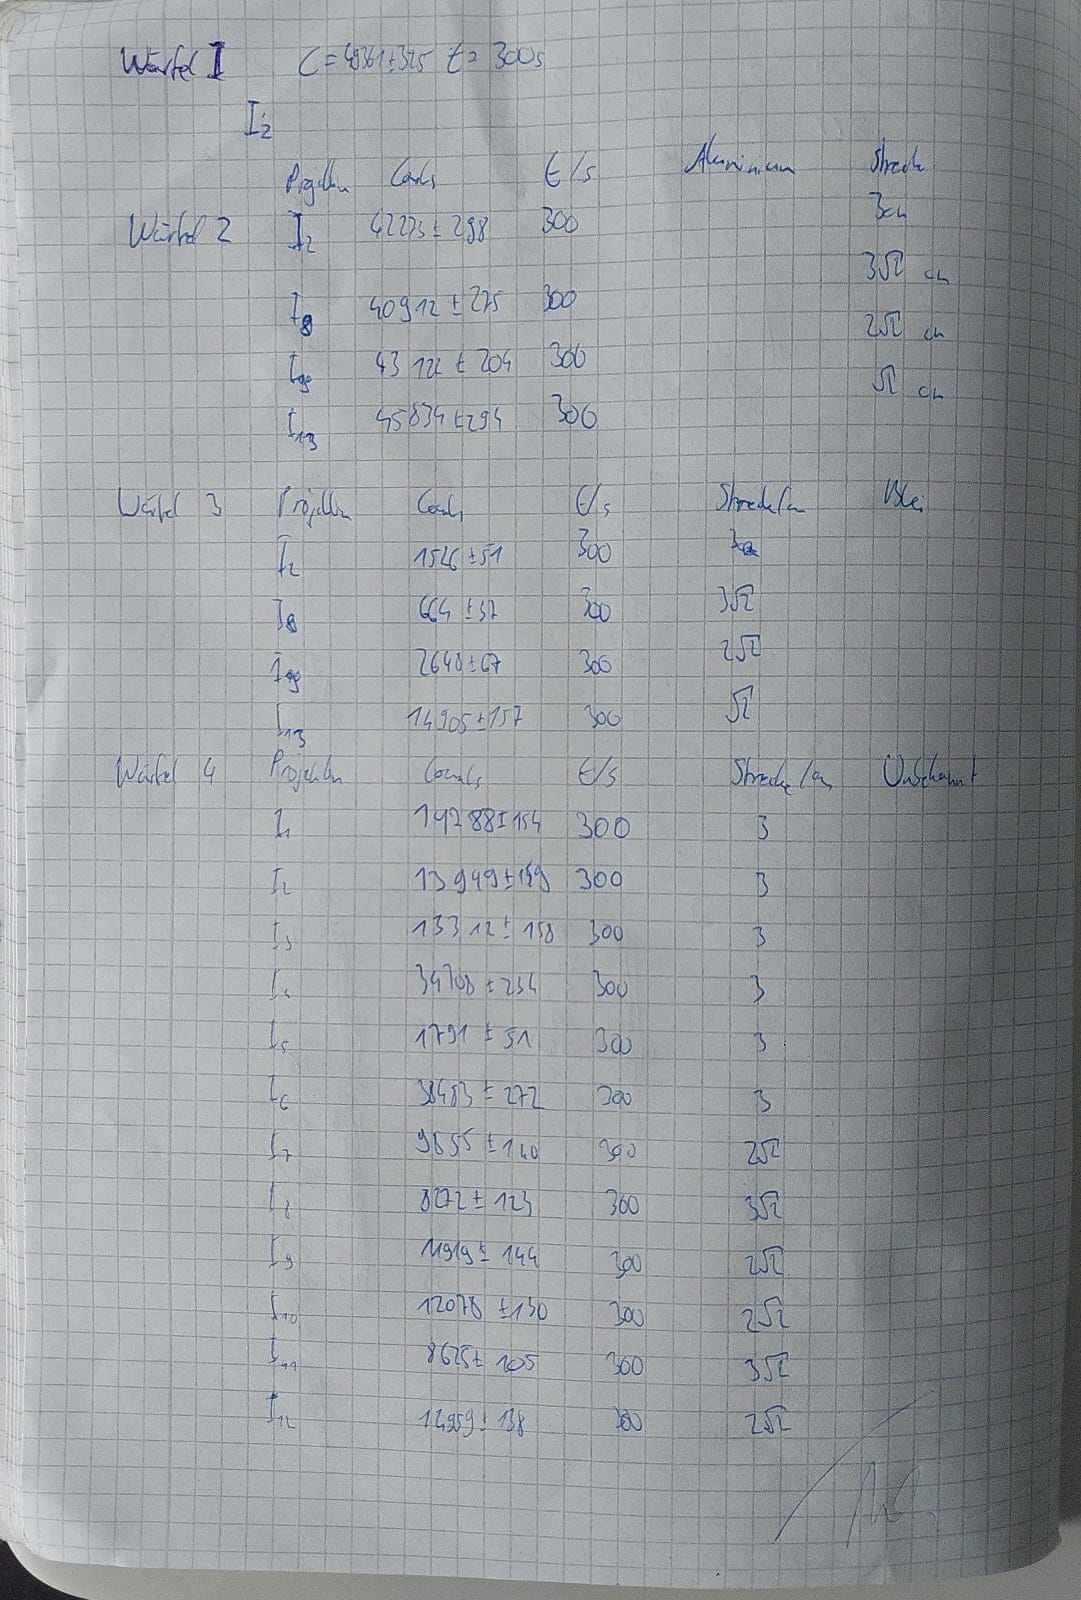 Würfel I C = 49361±325 t = 300s
I2
Projektion Counts t/s Aluminium Strecke
Würfel 2 I2 42273 ± 298 300 3cm
I8 40912 ± 275 300 3√2 cm
43 ± 204 300 2√2 cm
I13 45834 ± 294 300 √2 cm
Würfel 3 Projektion Counts t/s Strecke/cm Blei
I2 1526 ± 51 300
I8 664 ± 37 300 3√2
2648 ± 67 300 2√2
I13 14905 ± 157 300 √2
Würfel 4 Projektion Counts t/s Strecke/cm Unbekannt
I1 14288 ± 154 300 3
I2 13949 ± 149 300 3
I3 13312 ± 158 300 3
I4 34708 ± 254 300 3
I5 1791 ± 51 300 3
I6 38483 ± 272 300 3
I7 9655 ± 140 300 2√2
I8 8272 ± 123 300 3√2
I9 11919 ± 144 300 2√2
I10 12078 ± 130 300 2√2
I11 8625 ± 105 300 3√2
I12 ± 138 300 2√2